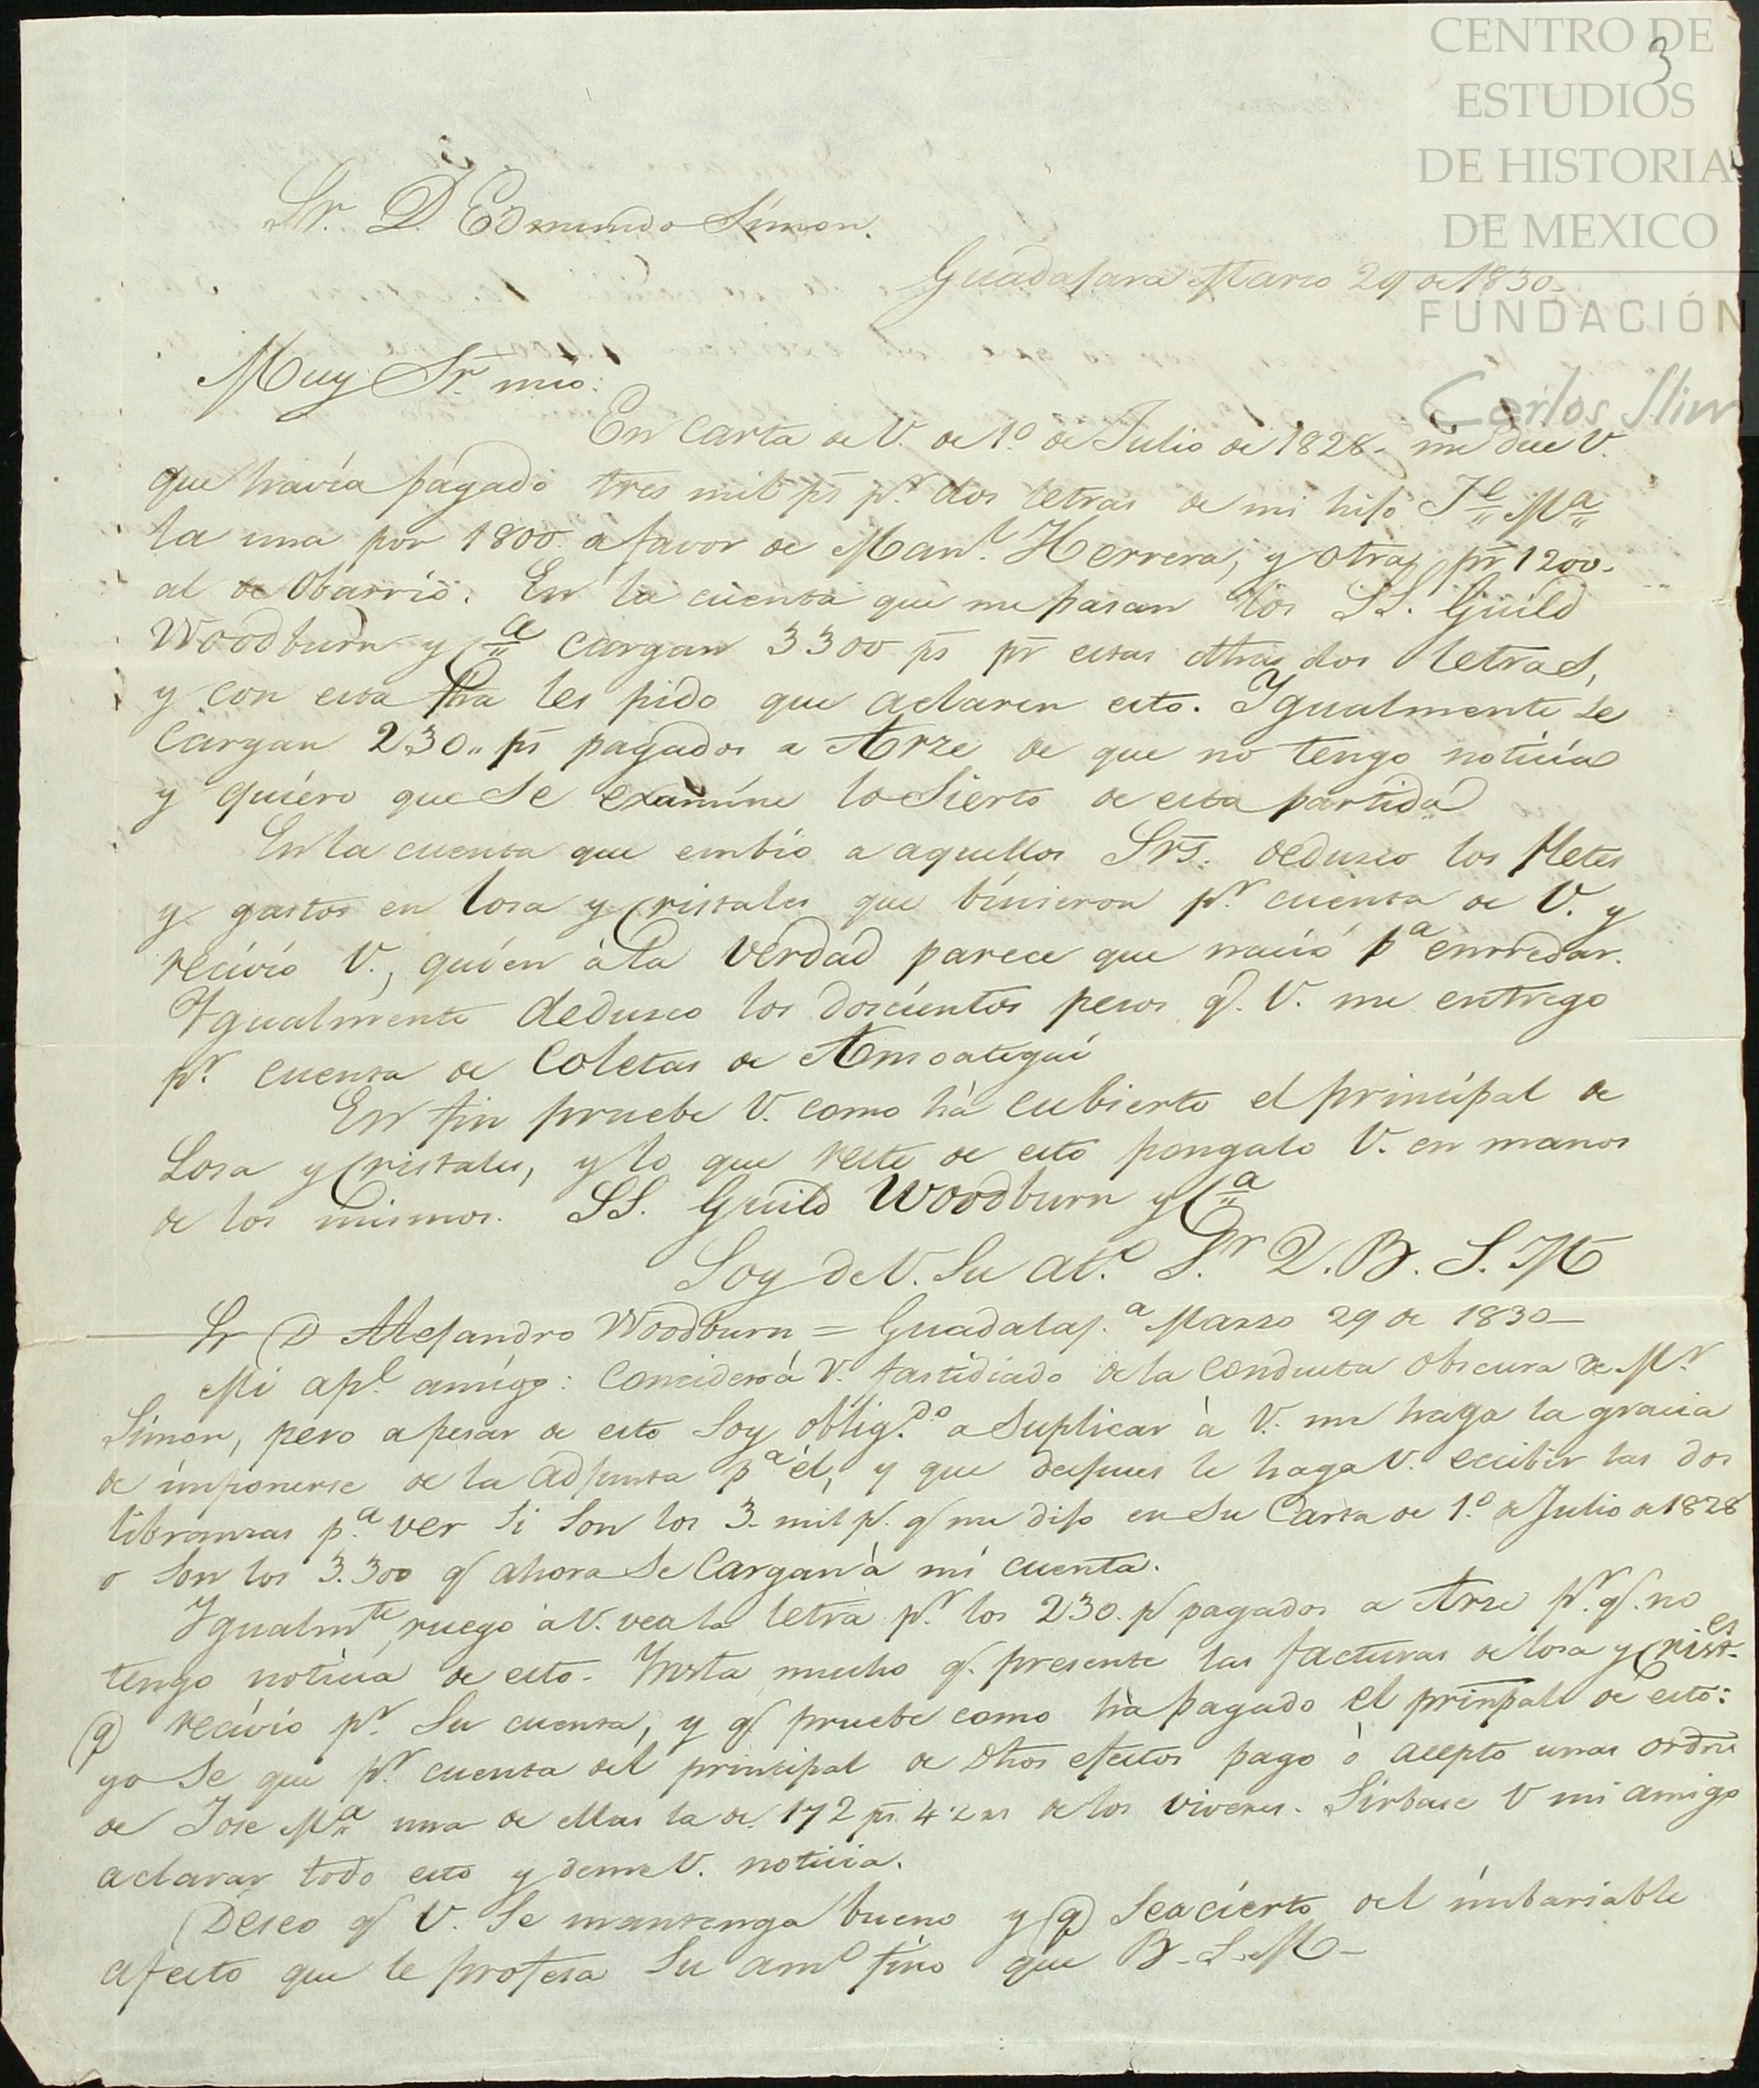 CENTRO DE
ESTUDIOS
DE HISTORIA
DE MEXICO
FUNDACIÓN
Carlos Slim
3
Sr. D. Edmundo Simon.
Guadalaxara Marzo 29 de 1830.
Muy Sr. mio:
En carta de V. de 1º de Julio de 1828. me dice V.
que havía pagado tres mil ps pr. dos letras de mi hijo Je Ma
la una por 1800. a favor de Manl. Herrera, y otra pr 1200.
al de Obarrio. En la cuenta que me pasan los SS. Guild
Woodburn y Ca cargan 3300 ps pr estas dhas dos letras,
y con esta fha les pido que aclaren esto. Igualmente se
cargan 230,, ps pagados a Arze de que no tengo noticia
y quiero que se examíne lo sierto de esta partida
En la cuenta que embio a aquellos Srs. dedusco los fletes
y gastos en losa y Cristales que binieron pr. cuenta de V. y
recivio V., quién à la verdad parece que nació pa enrredar.
Ygualmente dedusco los doscientos pesos q. V. me entrego
pr. cuenta de Coletas de Amoategui
En fin pruebe V. como hà cubierto el principal de
Losa y Cristales, y lo que reste de esto pongalo V. en manos
de los mismos. SS. Guild Woodburn y Ca
Soy de V. Su ato. S.or Q. B. S. M
Sr D Alejandro Woodburn = Guadalaj.a Marzo 29 de 1830—
Mi apl. amigo: Considero à V. fastidiado de la conducta obscura de Mr.
Simon, pero apesar de esto soy oblig.do a suplicar à V. me haga la gracia
de imponerse de la adjunta pa él, y que despues le haga V. ecsibir las dos
libranzas p.a ver si son los 3. mil p. q me dijo en su Carta de 1.o de Julio de 1828
o son los 3.300 q ahora se cargan à mi cuenta.
Ygualmte ruego à V. vea la letra pr. los 230. p pagados a Arze pr. q. no
tengo noticia de esto. Ynsta mucho q. presente las facturas de losa y Cristes.
q recivio pr. su cuenta, y q pruebe como ha pagado el prinpal de esto:
yo se que pr. cuenta del principal de dhos efectos pago ò acepto unas ordns
de Jose Ma una de ellas la de 172 ps. 4 rs de los viveres. Sirbase V mi amigo
aclarar todo esto y deme V. noticia.
Deseo q V. se mantenga bueno y q sea cierto del imbariable
afecto que le profesa su amo fino que B. S. M—